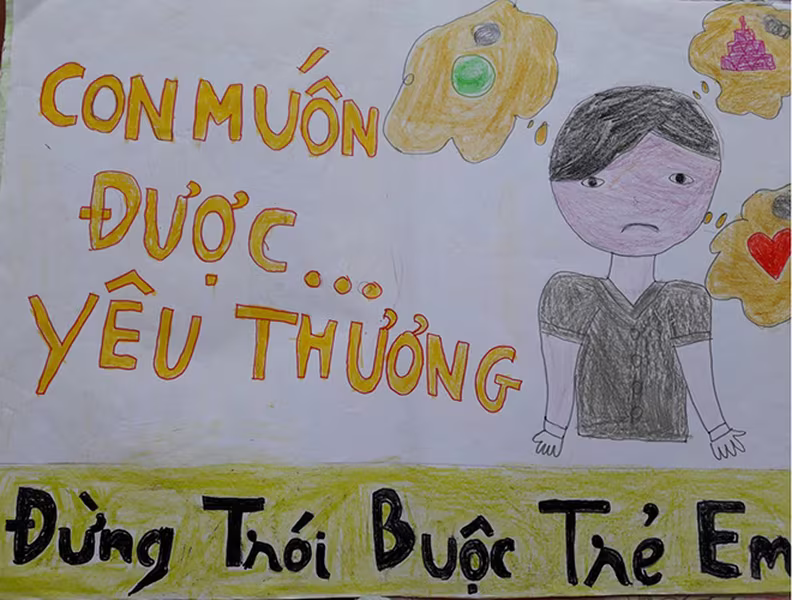 CON MUỐN
ĐƯỢC...
YÊU THƯƠNG
Đừng Trói Buộc Trẻ Em